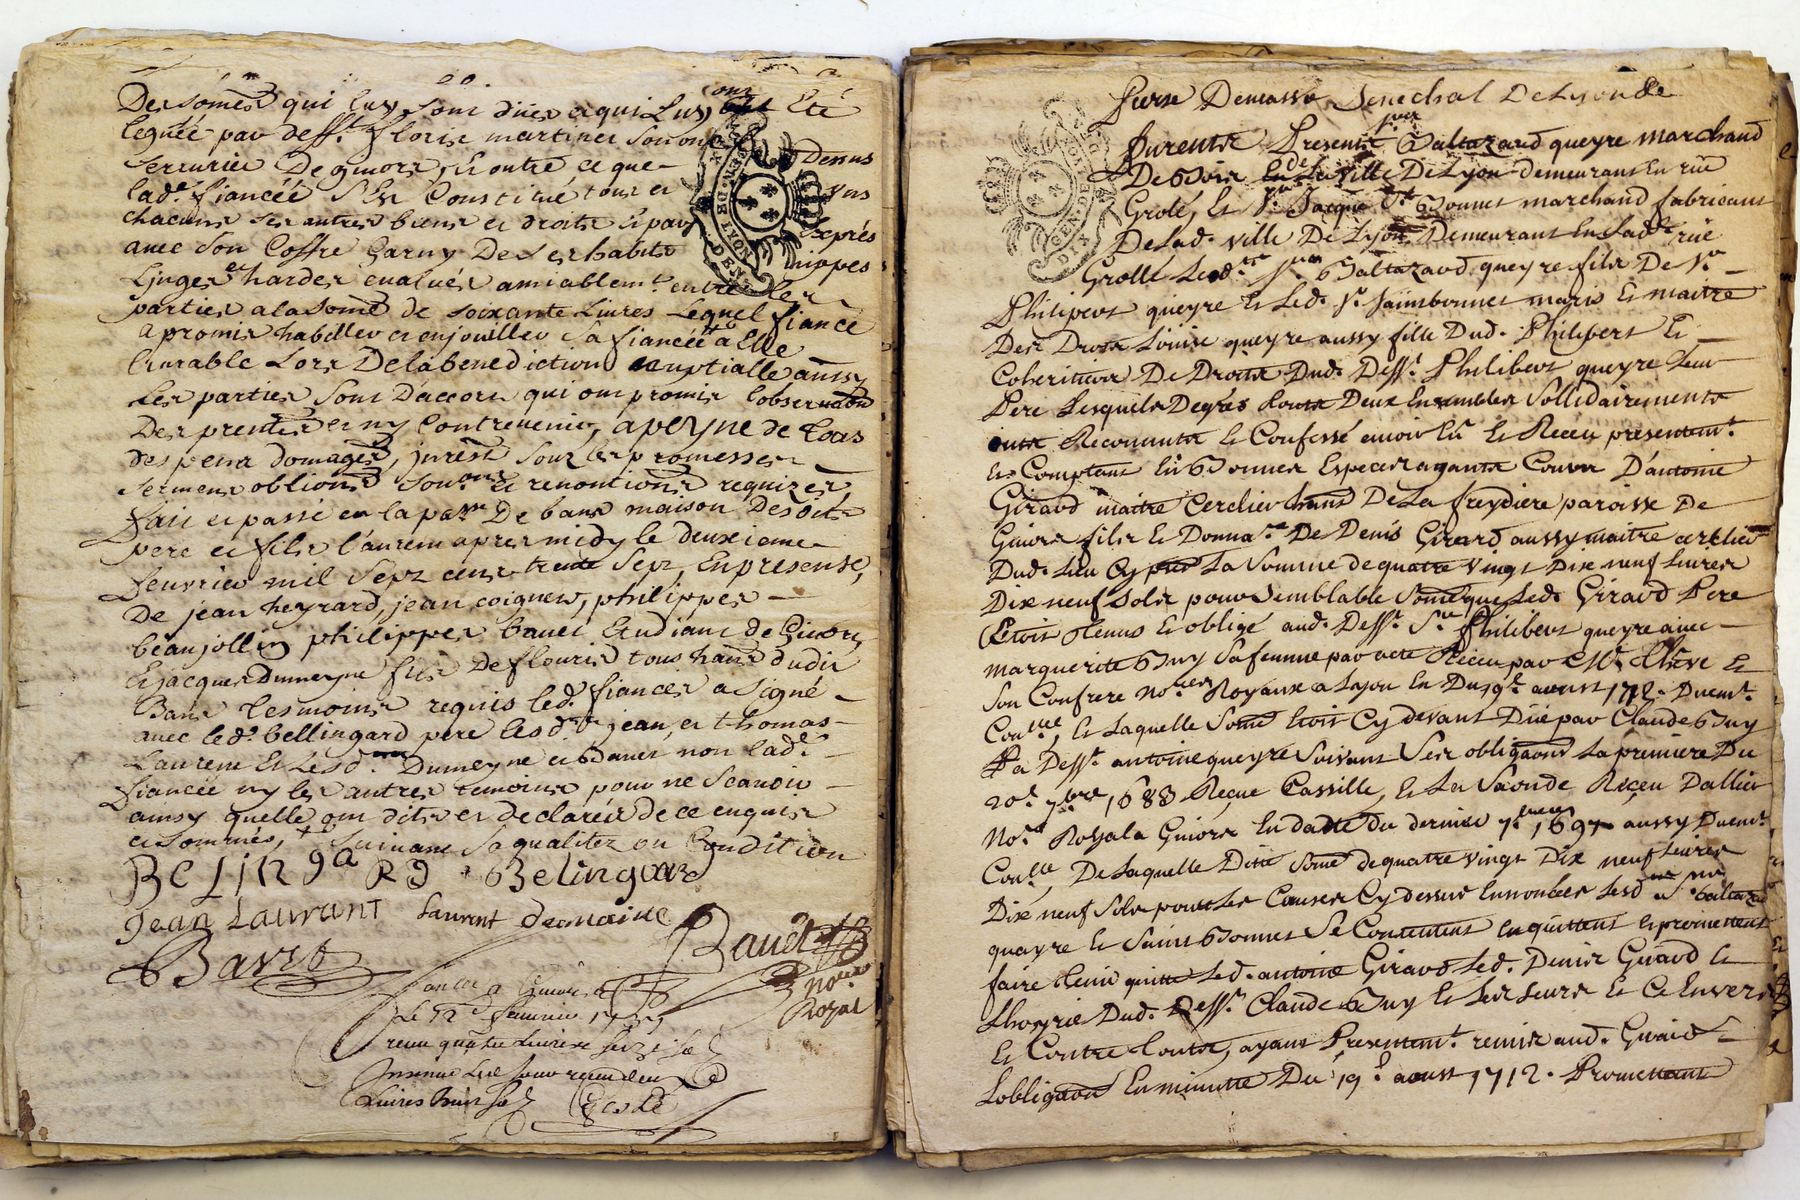 Des somes qui luy sont dües et qui luy ont Eté
leguée par deff.t florie martinet son oncle
serrurier De givors, Et outre ce que Dessus
lad.e fiancéé S'Est Constitué tous et Uns
chacuns ses autres biens et droits Et par Exprés
avec Son Coffre Garny De Ses habits nippes
Linges et hardes évalués amiablem.t entre les
parties a la some de soixante Livres Lequel fiancé
a promis habiller et enjouiller Sa fiancéé a Elle
hnrable Lors De la benediction nuptialle ainsy
Les parties Sont D'accord qui ont promis l'observation
Des pntes et ny Contrevenir, a peyne de tous
despens domages, jntrest sous les promesses
serments obligons Soum.ons et renontions requises
fait et passé en la par.e De bans maison Desdits
pere et fils laurent apres midy le deuxieme
fevrier mil Sept cens trente Sept, En presense,
De jean heyrard, jean coignet, philippes
beaujollin philippes bauet Etudiant de Givors,
Et jacques Dumeyne fils De flouris tous hans dudit
Bans tesmoins requis led. fiancé a signé
avec led. bellingard pere lesd.ts jean, et thomas
Laurent Et Lesd. Dumeyne et bauet non lad.e
fiancéé ny les autres temoins pour ne Scavoir
ainsy quelle ont dits et declarés de ce enquis
et sommés, Suivant Sa qualitez ou Condition
BELINgaRD Belingard
Jean Laurant Laurent demaine
Bauet
Bauet
no.re
Royal
Con.lé a Givors
le 12 fevrier 1737
receu quatre livres seize s
livres huit s
Pierre Demasso Senechal De Lyon &
Furents Presents s.ieur Baltazard queyre marchand
De Soie en la Ville De Lyon demeurant En rüe
Grolé, Et S.r Jacque S.t Bonnet marchand fabricant
De Lad. ville De Lyon Demeurant En Lad.e rüe
Grollé Led. s.ieur Baltazard queyre fils De S.r
Philipert queyre Et Led. S.r Saintbonnet mary Et maitre
Des Droits Louise queyre aussy fille Dud. Philibert Et
Coheritiers De Droits Dud. Deff.t Philibert queyre Leur
Pere Lesquels Degrés Tous Deux Ensembles Sollidairements
onts Reconnuts Et Confessé avoir Eü Et Receu presentem.t
Et Comptant En Bonnes Especes ayants Cours D'antoine
Giraud maitre Cerclier hant De La freydiere paroisse De
Givors fils Et Donna.re De Denis Giraud aussy maitre cerclier
Dud. Lieu Cy La Somme de quatre Vingt Dix neuf Livres
Dix neuf sols pour Semblable Some que Led. Giraud Pere
Etoit Tenus Et obligé aud. Deff.t S.r Philibert queyre avec
marguerite Buy Sa femme par acte Receu par M.e Et
Son Confrere No.res Royaux a Lyon En Du 19.e aoust 1712. Duem.t
Con.llé, Et Laquelle Some Etoit Cy devant Düe par Claude Buy
Pa Deff.t antoine queyre Suivant Ses obligaons La premiere Du
20.e 7bre 1688 Reçue Cassille, Et La Seconde Receu Dallier
No.re Royal a Givors En datte du dernier 1697 aussy Duem.t
Con.llé, De Laquelle Ditte Some de quatre vingt Dix neuf Livres
Dix neuf Sols pour Les Causes Cy dessus Ennoncées Lesd. S.rs baltazard
queyre Et Saint Bonnet Se Contentent En quittent Et promettent
faire tenir quitte Led. antoine Giraud Led. Denis Giraud Et
L'hoyrie Dud. Deff.t Claude Buy Et Les Leurs Et Ce Envers
Et Contre touts, ayant Presentem.t remis aud. Giraud
Lobligaon En minutte Du 19.e aoust 1712. Promettant